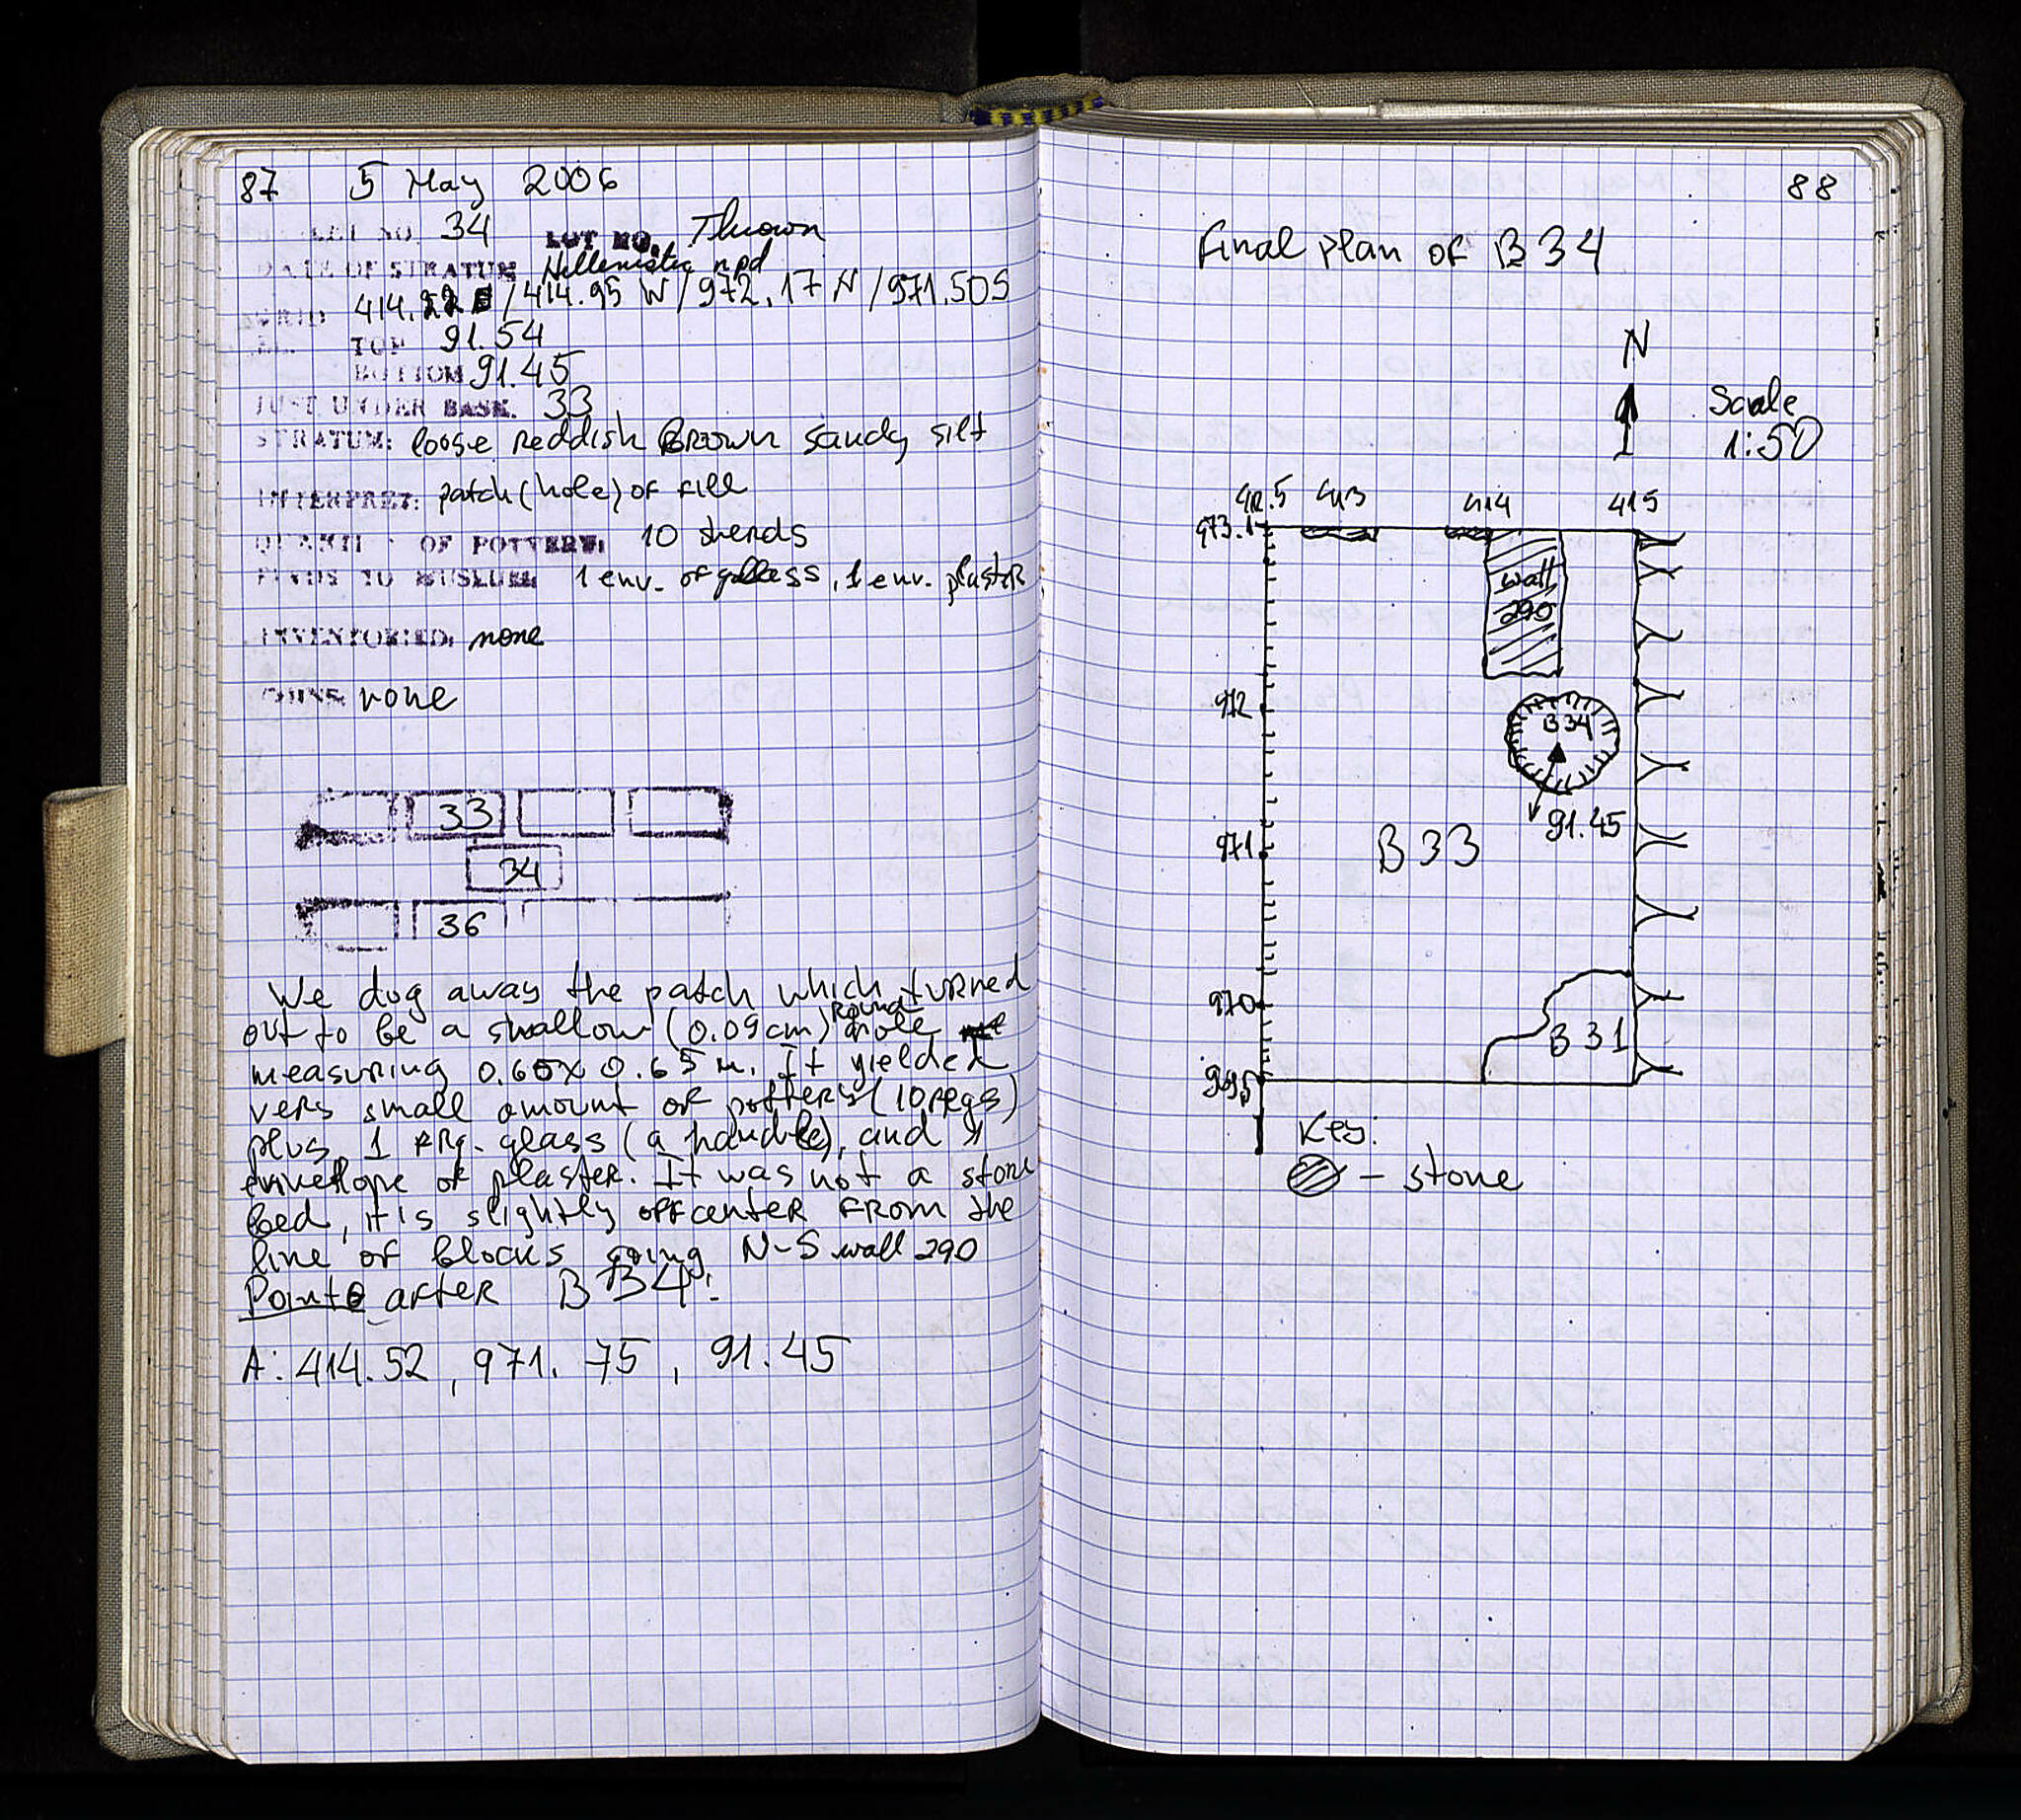 87 5 May 2006
34 LOT NO. Thrown
DATE OF STRATUM Hellenistic npd
GRID: /414.95 W/972.17 N/971.50S
TOP 91.54
BOTTOM 91.45
JUST UNDER BASK. 33
STRATUM: loose reddish Brown sandy silt
INTERPRET: patch (hole) of fill
OF POTTERY: 10 sherds
FINDS TO MUSEUM: 1 env. of glass, 1 env. plaster
INVENTORIED: none
COINS none
33
34
36
We dug away the patch which turned
out to be a shallow (0.09cm) Round hole
measuring 0.65x0.65 m. It yielded
very small amount of pottery (10 pcgs)
plus 1 frg. glass (a handle), and 1
envelope of plaster. It was not a stone
bed, it is slightly offcenter from the
line of blocks going N-S wall 290
Points after B 34:
A: 414.52, 971.75, 91.45
88
Final plan of B34
N
Scale
1:50
412.5 413 414 415
973.1
wall
290
972
B34
91.45
971
B 33
970
B 31
969.5
Key:
– stone